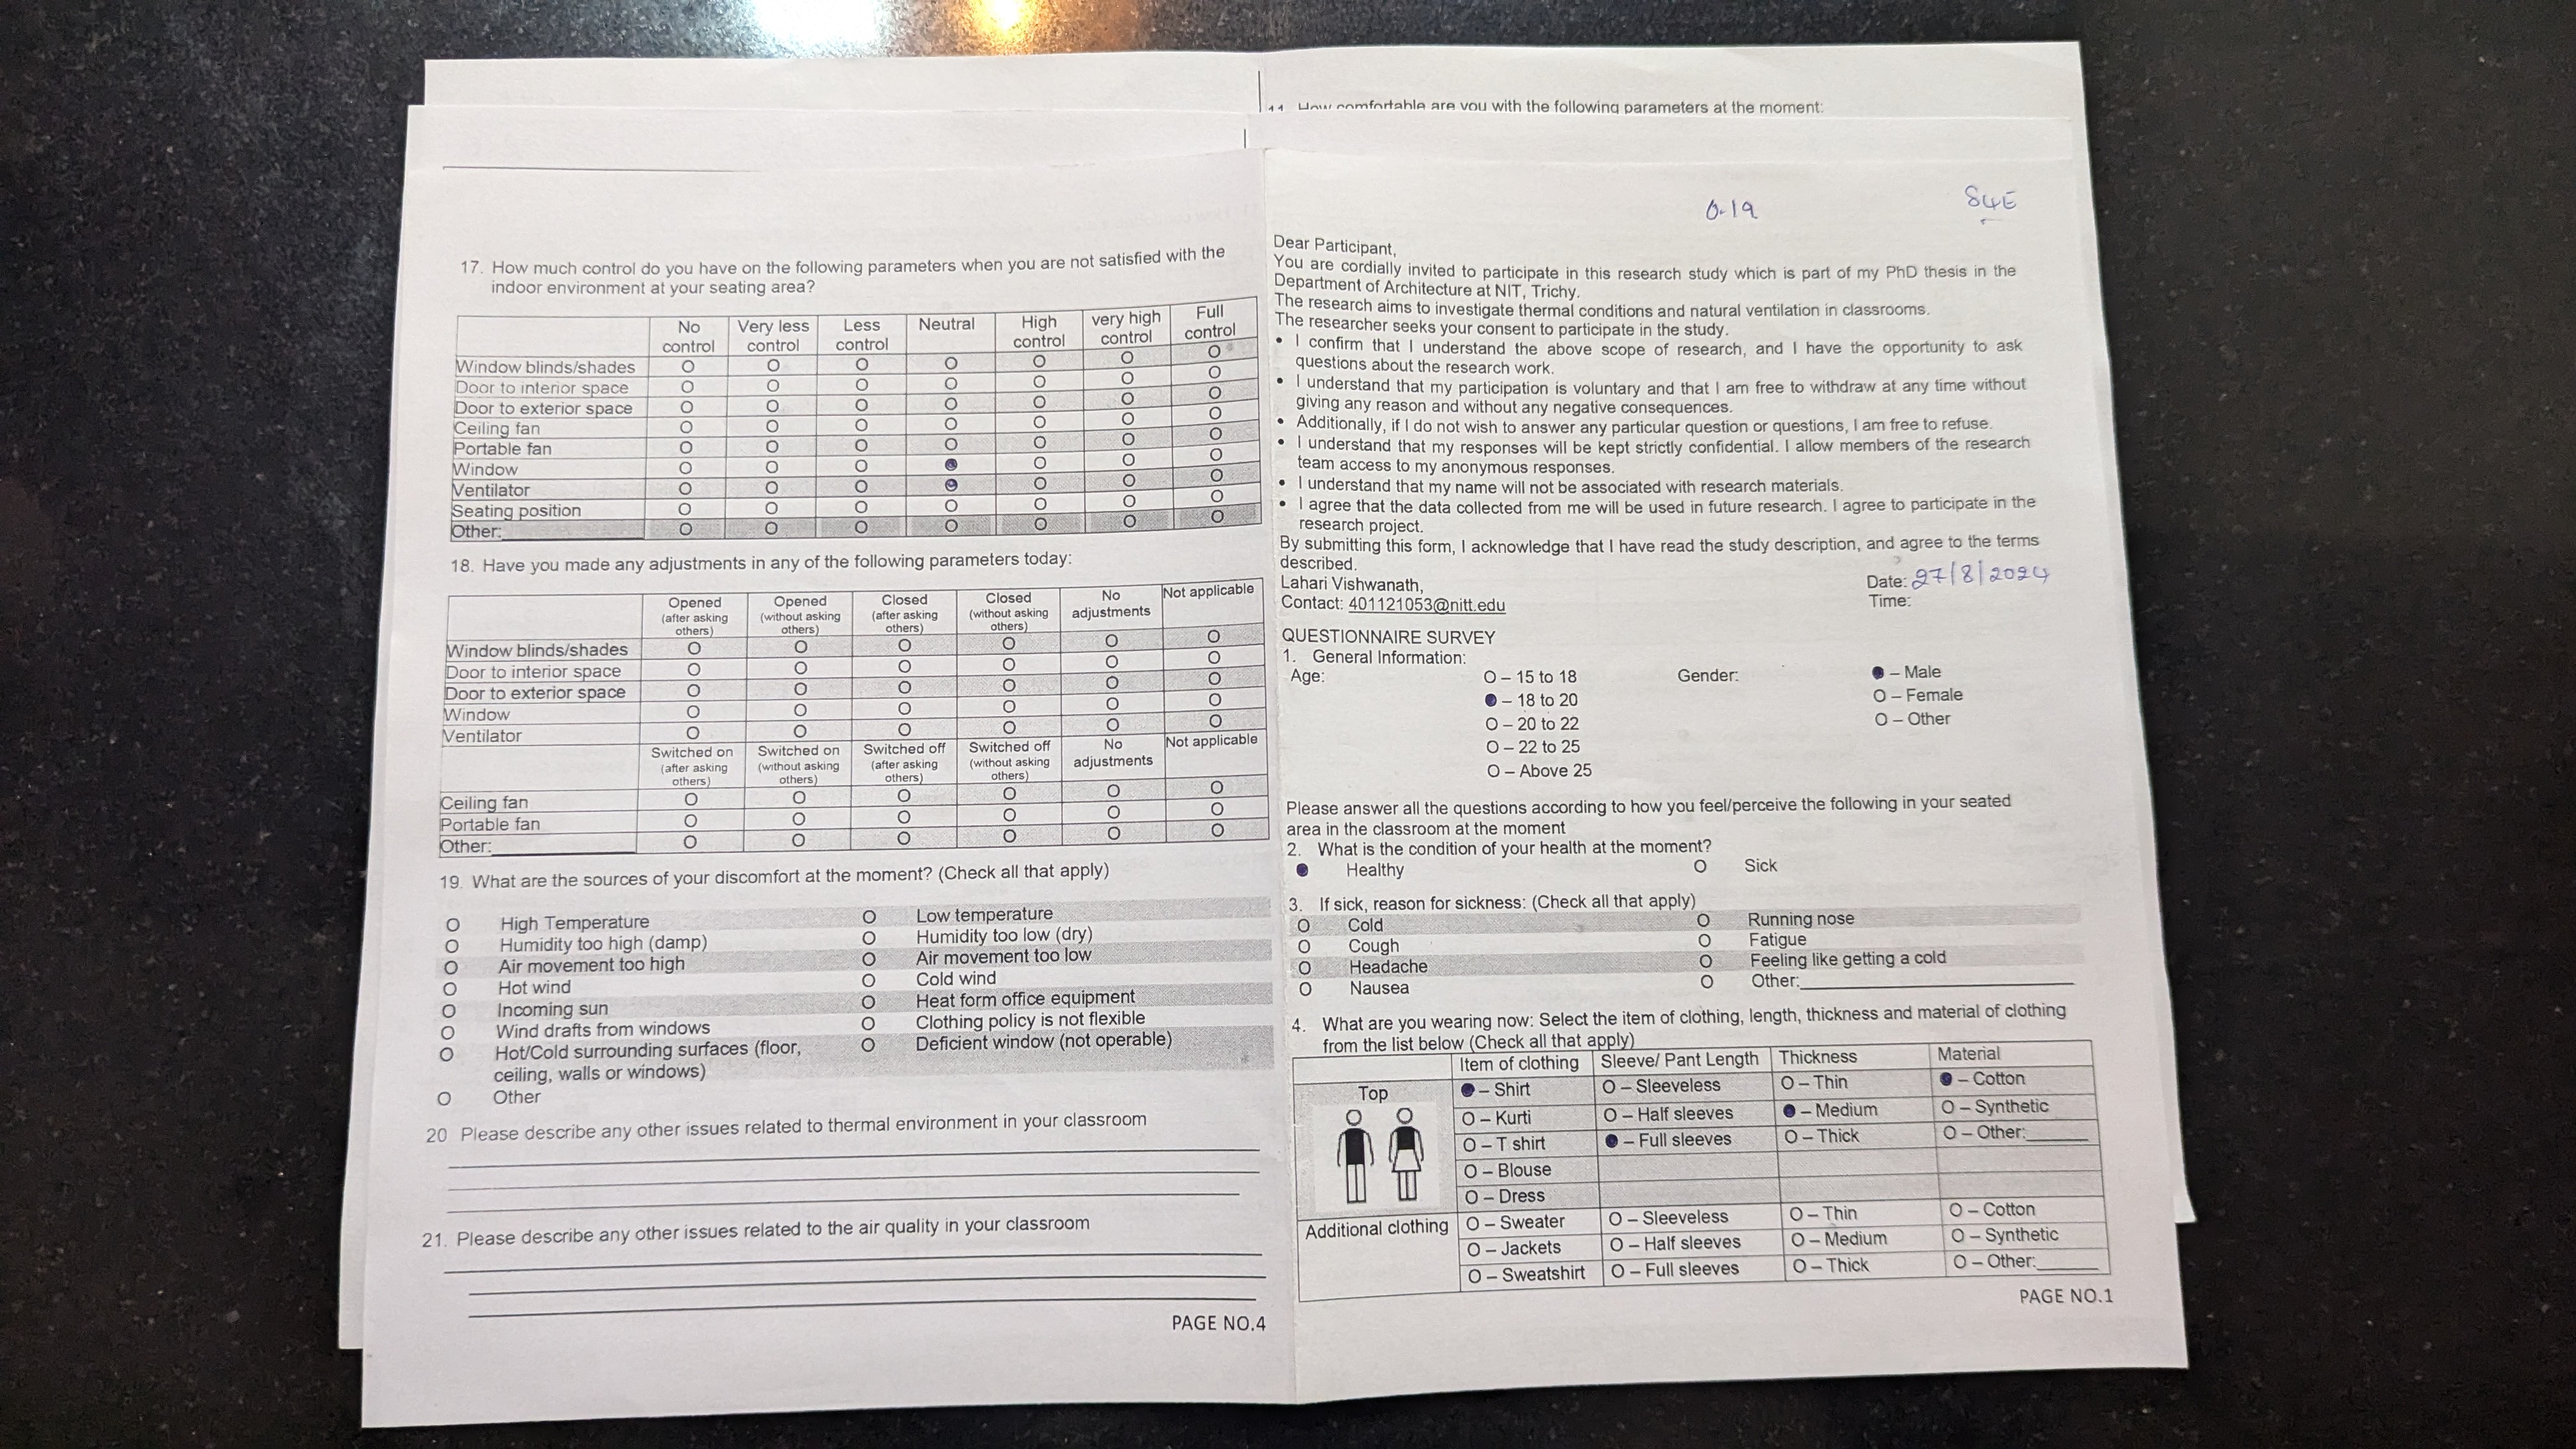 11. How comfortable are you with the following parameters at the moment:
17. How much control do you have on the following parameters when you are not satisfied with the
indoor environment at your seating area?
No control Very less control Less control Neutral High control very high control Full control
Window blinds/shades O O O O O O O
Door to interior space O O O O O O O
Door to exterior space O O O O O O O
Ceiling fan O O O O O O O
Portable fan O O O O O O O
Window O O O ● O O O
Ventilator O O O ● O O O
Seating position O O O O O O O
Other: O O O O O O O
18. Have you made any adjustments in any of the following parameters today:
Opened (after asking others) Opened (without asking others) Closed (after asking others) Closed (without asking others) No adjustments Not applicable
Window blinds/shades O O O O O O
Door to interior space O O O O O O
Door to exterior space O O O O O O
Window O O O O O O
Ventilator O O O O O O
Switched on (after asking others) Switched on (without asking others) Switched off (after asking others) Switched off (without asking others) No adjustments Not applicable
Ceiling fan O O O O O O
Portable fan O O O O O O
Other: O O O O O O
19. What are the sources of your discomfort at the moment? (Check all that apply)
O High Temperature O Low temperature
O Humidity too high (damp) O Humidity too low (dry)
O Air movement too high O Air movement too low
O Hot wind O Cold wind
O Incoming sun O Heat form office equipment
O Wind drafts from windows O Clothing policy is not flexible
O Hot/Cold surrounding surfaces (floor, O Deficient window (not operable)
ceiling, walls or windows)
O Other
20 Please describe any other issues related to thermal environment in your classroom
21. Please describe any other issues related to the air quality in your classroom
PAGE NO.4
0-19 S4E
Dear Participant,
You are cordially invited to participate in this research study which is part of my PhD thesis in the
Department of Architecture at NIT, Trichy.
The research aims to investigate thermal conditions and natural ventilation in classrooms.
The researcher seeks your consent to participate in the study.
• I confirm that I understand the above scope of research, and I have the opportunity to ask
questions about the research work.
• I understand that my participation is voluntary and that I am free to withdraw at any time without
giving any reason and without any negative consequences.
• Additionally, if I do not wish to answer any particular question or questions, I am free to refuse.
• I understand that my responses will be kept strictly confidential. I allow members of the research
team access to my anonymous responses.
• I understand that my name will not be associated with research materials.
• I agree that the data collected from me will be used in future research. I agree to participate in the
research project.
By submitting this form, I acknowledge that I have read the study description, and agree to the terms
described.
Lahari Vishwanath, Date: 27/8/2024
Contact: 401121053@nitt.edu Time:
QUESTIONNAIRE SURVEY
1. General Information:
Age: O – 15 to 18 Gender: ● – Male
● – 18 to 20 O – Female
O – 20 to 22 O – Other
O – 22 to 25
O – Above 25
Please answer all the questions according to how you feel/perceive the following in your seated
area in the classroom at the moment
2. What is the condition of your health at the moment?
● Healthy O Sick
3. If sick, reason for sickness: (Check all that apply)
O Cold O Running nose
O Cough O Fatigue
O Headache O Feeling like getting a cold
O Nausea O Other:
4. What are you wearing now: Select the item of clothing, length, thickness and material of clothing
from the list below (Check all that apply)
Item of clothing Sleeve/ Pant Length Thickness Material
Top ● – Shirt O – Sleeveless O – Thin ● – Cotton
O – Kurti O – Half sleeves ● – Medium O – Synthetic
O – T shirt ● – Full sleeves O – Thick O – Other:
O – Blouse
O – Dress
Additional clothing O – Sweater O – Sleeveless O – Thin O – Cotton
O – Jackets O – Half sleeves O – Medium O – Synthetic
O – Sweatshirt O – Full sleeves O – Thick O – Other:
PAGE NO.1